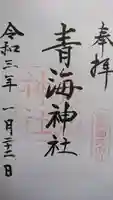 奉拝
青海神社
令和三年一月二十三日